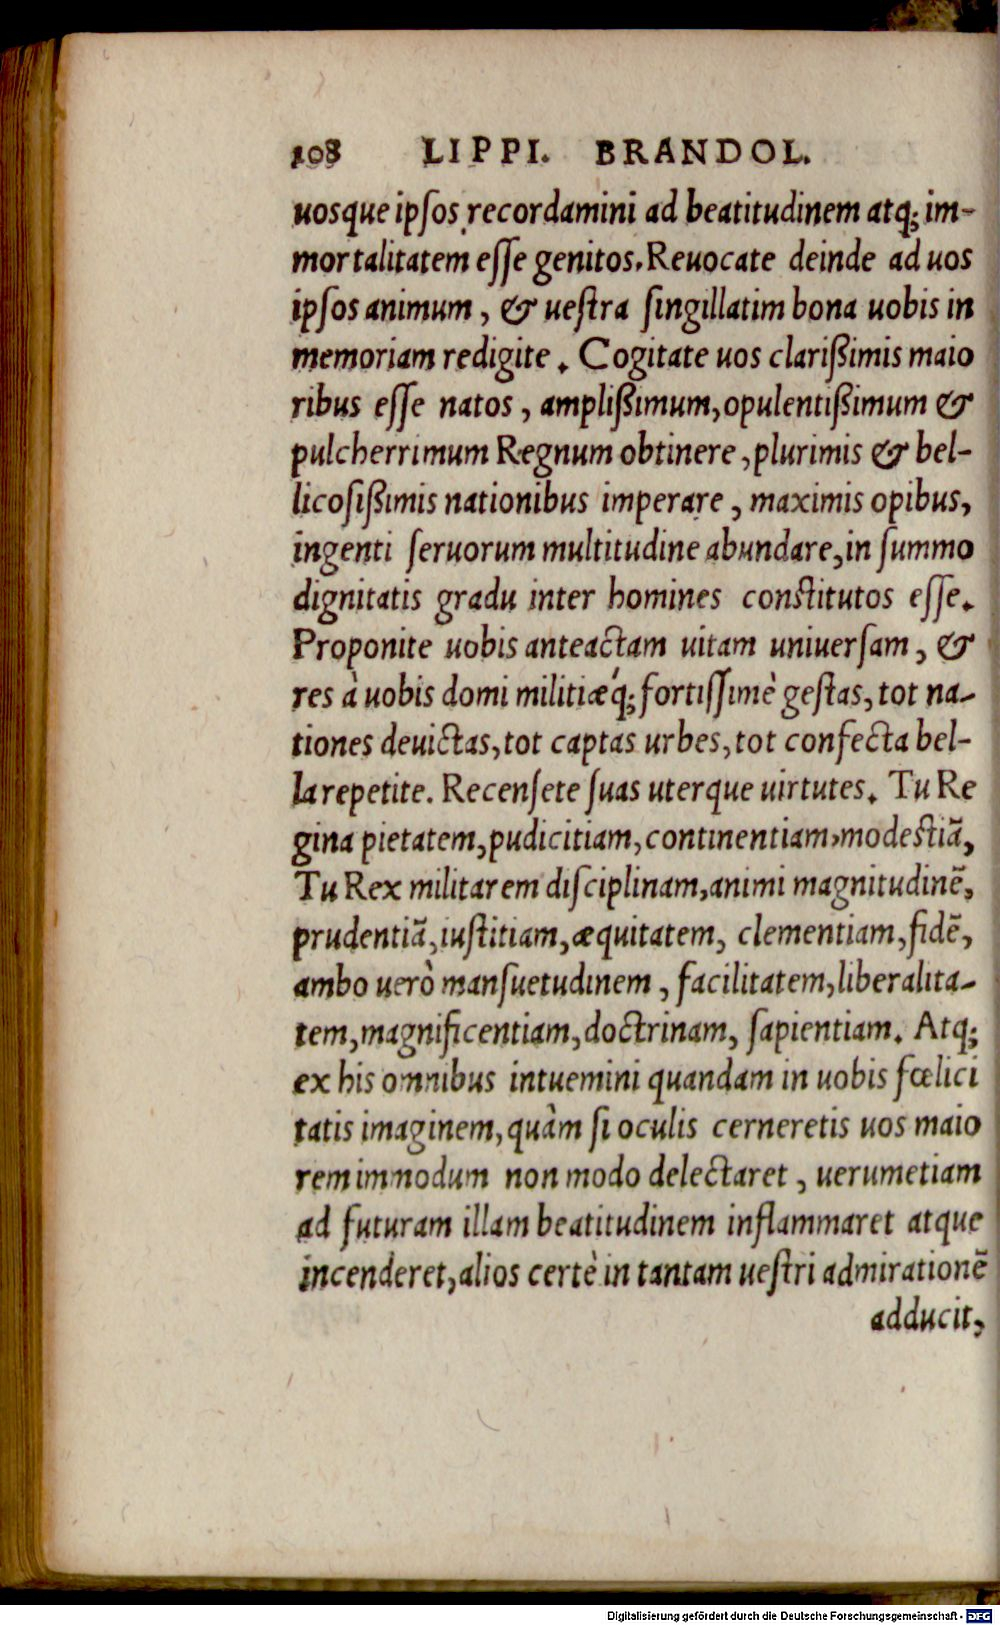 108 LIPPI. BRANDOL.
uosque ipſos recordamini ad beatitudinem atq; im-
mortalitatem eſſe genitos. Reuocate deinde ad uos
ipſos animum, & ueſtra ſingillatim bona uobis in
memoriam redigite. Cogitate uos clarißimis maio
ribus eſſe natos, amplißimum, opulentißimum &
pulcherrimum Regnum obtinere, plurimis & bel-
licoſißimis nationibus imperare, maximis opibus,
ingenti ſeruorum multitudine abundare, in ſummo
dignitatis gradu inter homines conſtitutos eſſe.
Proponite uobis anteactam uitam uniuerſam, &
res à uobis domi militiæq́; fortiſſimè geſtas, tot na-
tiones deuictas, tot captas urbes, tot confecta bel-
la repetite. Recenſete ſuas uterque uirtutes. Tu Re
gina pietatem, pudicitiam, continentiam, modeſtiã,
Tu Rex militarem diſciplinam, animi magnitudinẽ,
prudentiã, iuſtitiam, æquitatem, clementiam, fidẽ,
ambo uerò manſuetudinem, facilitatem, liberalita-
tem, magnificentiam, doctrinam, ſapientiam. Atq;
ex his omnibus intuemini quandam in uobis fœlici
tatis imaginem, quàm ſi oculis cerneretis uos maio
rem immodum non modo delectaret, uerumetiam
ad futuram illam beatitudinem inflammaret atque
incenderet, alios certè in tantam ueſtri admirationẽ
adducit,
Digitalisierung gefördert durch die Deutsche Forschungsgemeinschaft - DFG